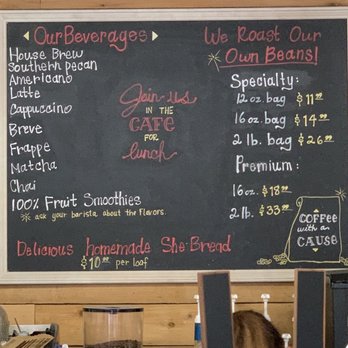 Our Beverages
House Brew
Southern pecan
Americano
Latte
Cappuccino
Breve
Frappe
Matcha
Chai
100% Fruit Smoothies
* ask your barista about the flavors.
Join us
IN THE
CAFE
FOR
lunch
Delicious homemade She-Bread
$10.00 per loaf
We Roast Our
Own Beans!
Specialty:
12 oz. bag $11.99
16 oz. bag $14.99
2 lb. bag $26.99
Premium:
16 oz $18.99
2 lb. $33.99
COFFEE
with an
CAUSE